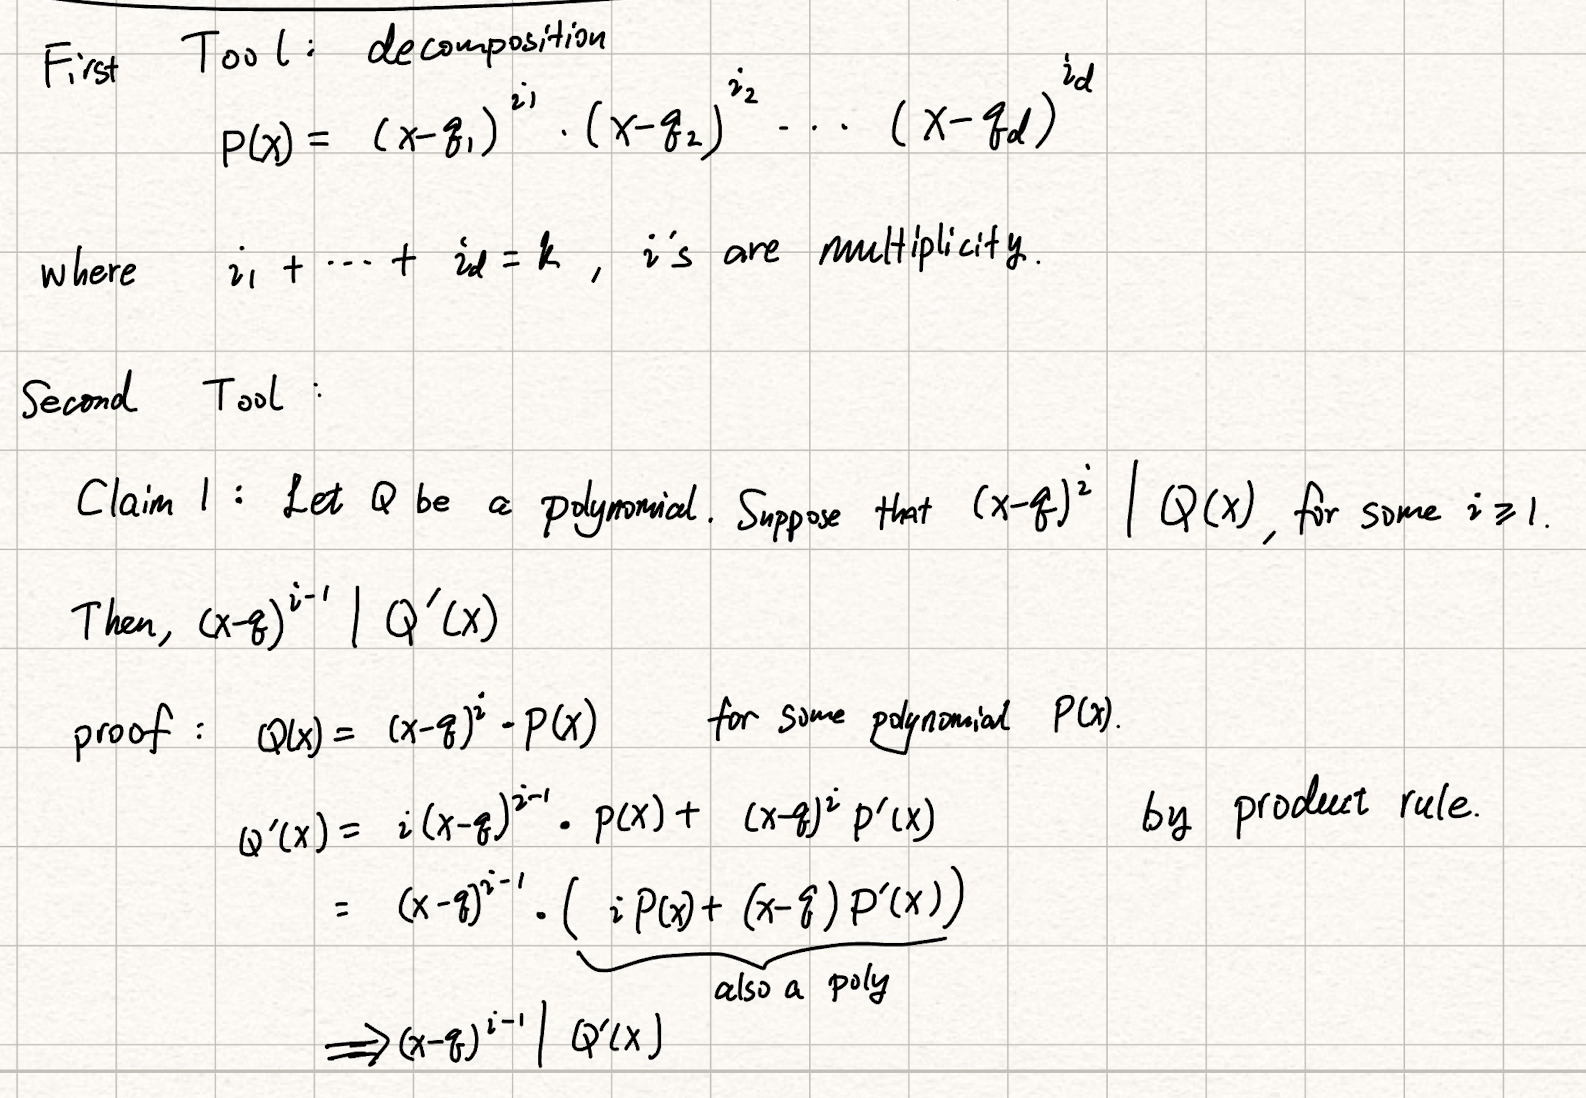 First Tool: decomposition
P(x) = (x-q₁)^i₁ · (x-q₂)^i₂ ··· (x-q_d)^i_d
where i₁ + ··· + i_d = k, i's are multiplicity.
Second Tool:
Claim 1: Let Q be a polynomial. Suppose that (x-q)^i | Q(x), for some i ≥ 1.
Then, (x-q)^(i-1) | Q'(x)
proof: Q(x) = (x-q)^i · P(x) for some polynomial P(x).
Q'(x) = i(x-q)^(i-1) · P(x) + (x-q)^i P'(x) by product rule.
= (x-q)^(i-1) · ( i P(x) + (x-q) P'(x))
also a poly
⟹ (x-q)^(i-1) | Q'(x)